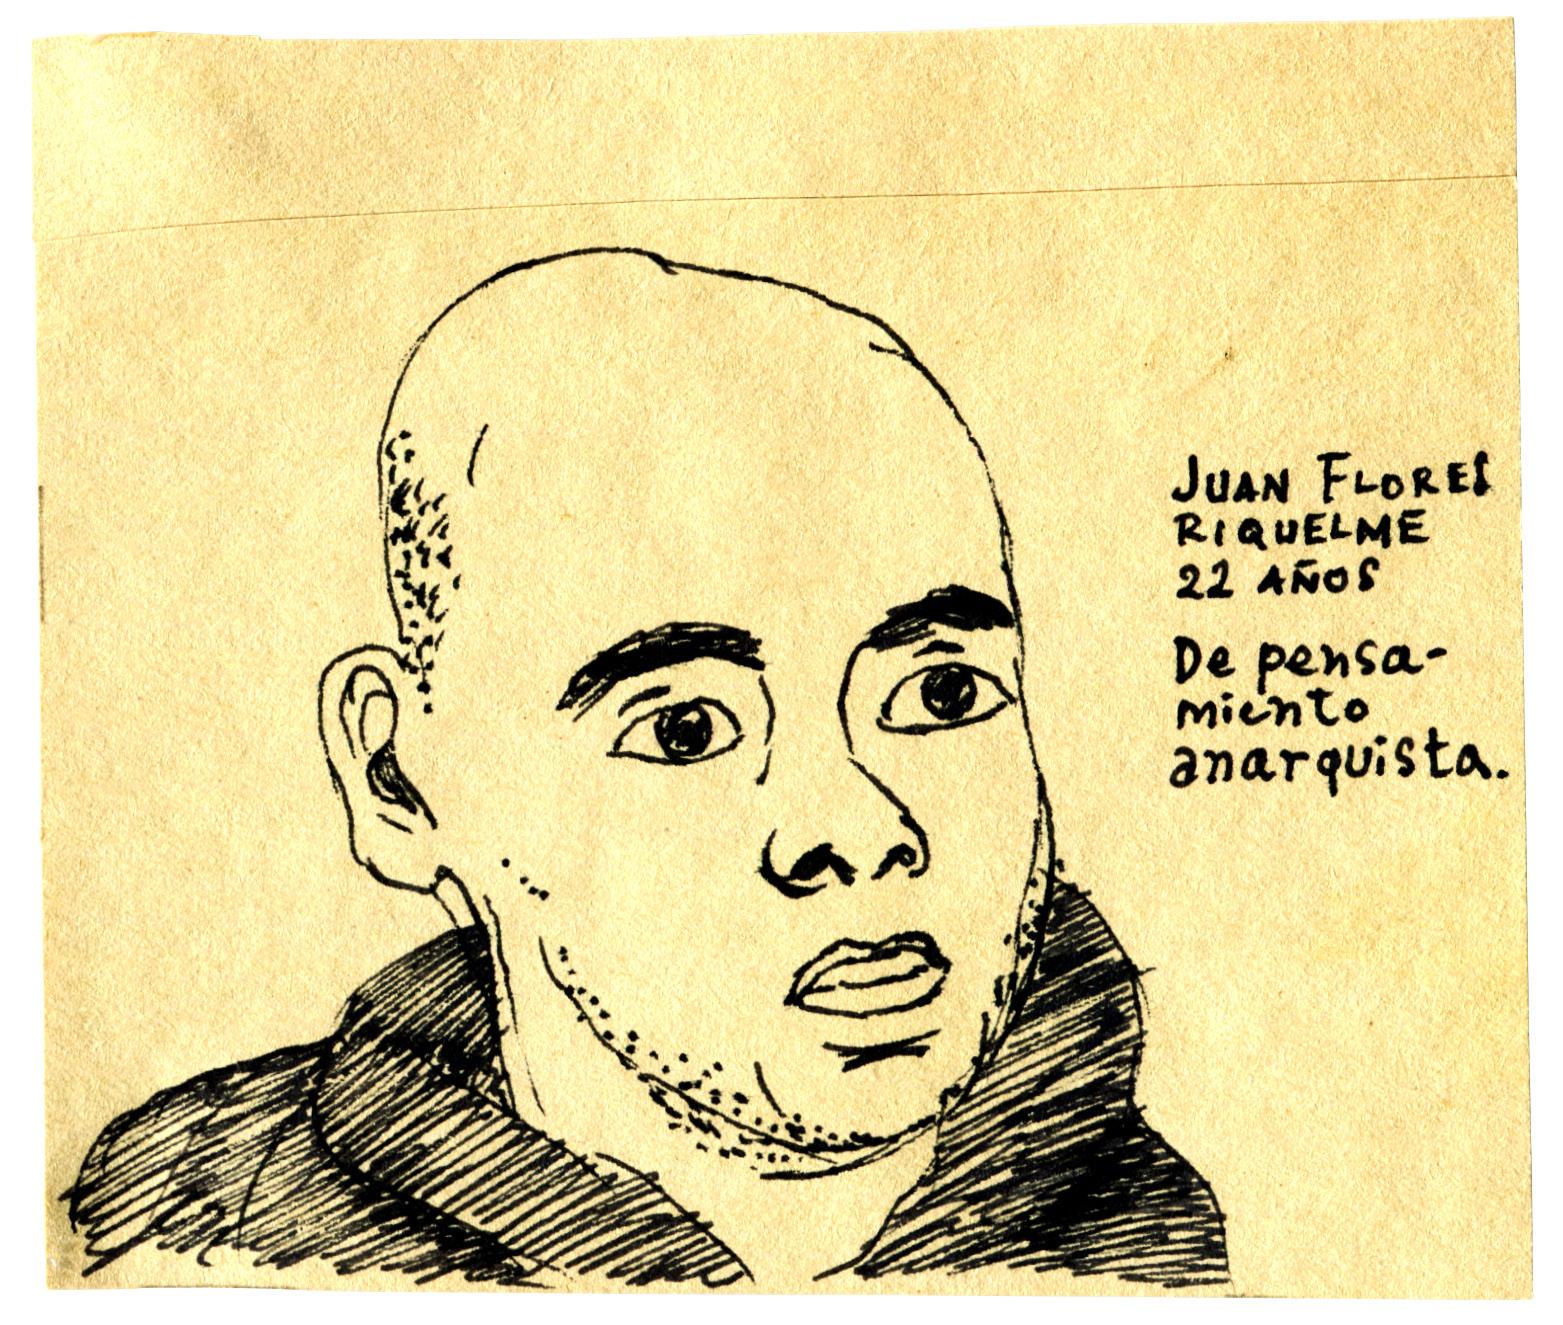 JUAN FLORES
RIQUELME
22 AÑOS
De pensa-
miento
anarquista.